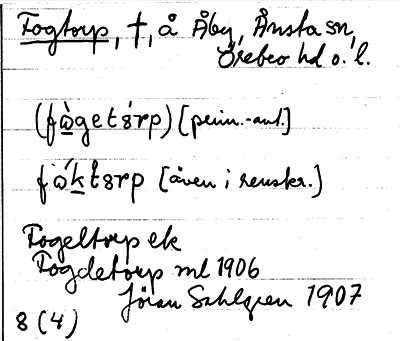 Fogtorp, †, å Åby, Ånsta sn,
Örebro hd o. l.
(fȯ̱̀getɞ́rp) [penn.-ant.]
fó̱ḵtɞrp [även i renskr.]
Fogeltorp ek
Fogdetorp ml 1906
Jöran Sahlgren 1907
8 (4)